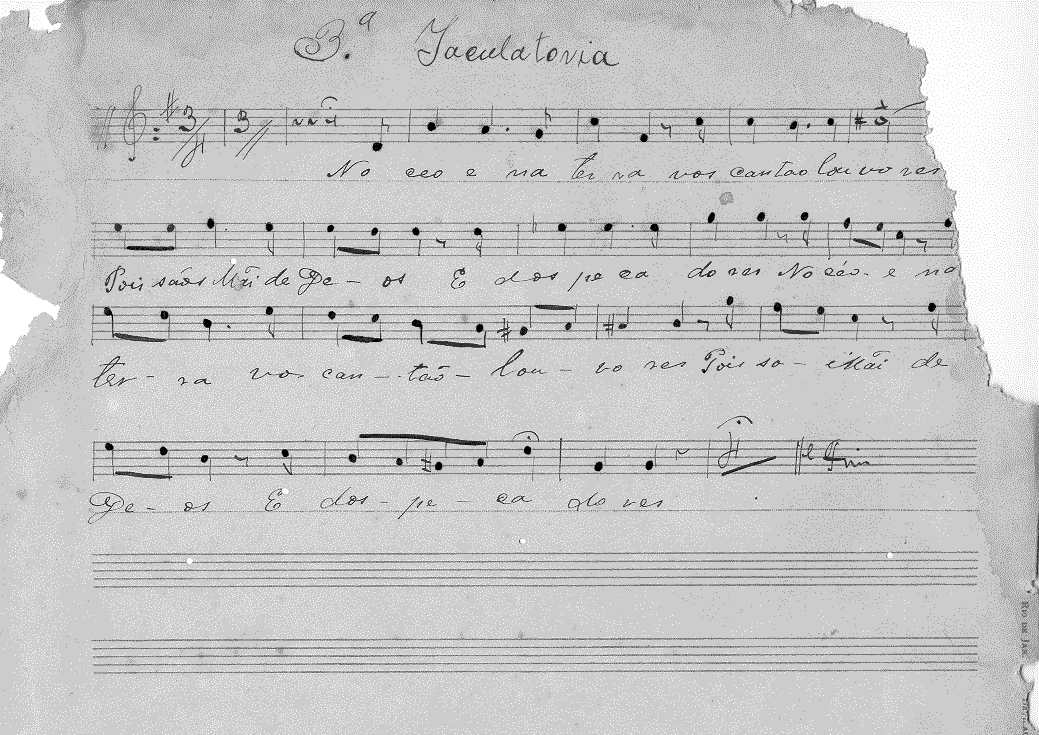 3.ª Jaculatoria
3/4 3
No ceo e na ter ra vos cantao lou vo res
Pois sãos Mãi de De - os E dos pe ca do res No céo e na
ter - ra vos can - tão - lou - vo res Pois so - Mãi de
De - os E dos - pe - ca do res
Fim
RIO DE JAN